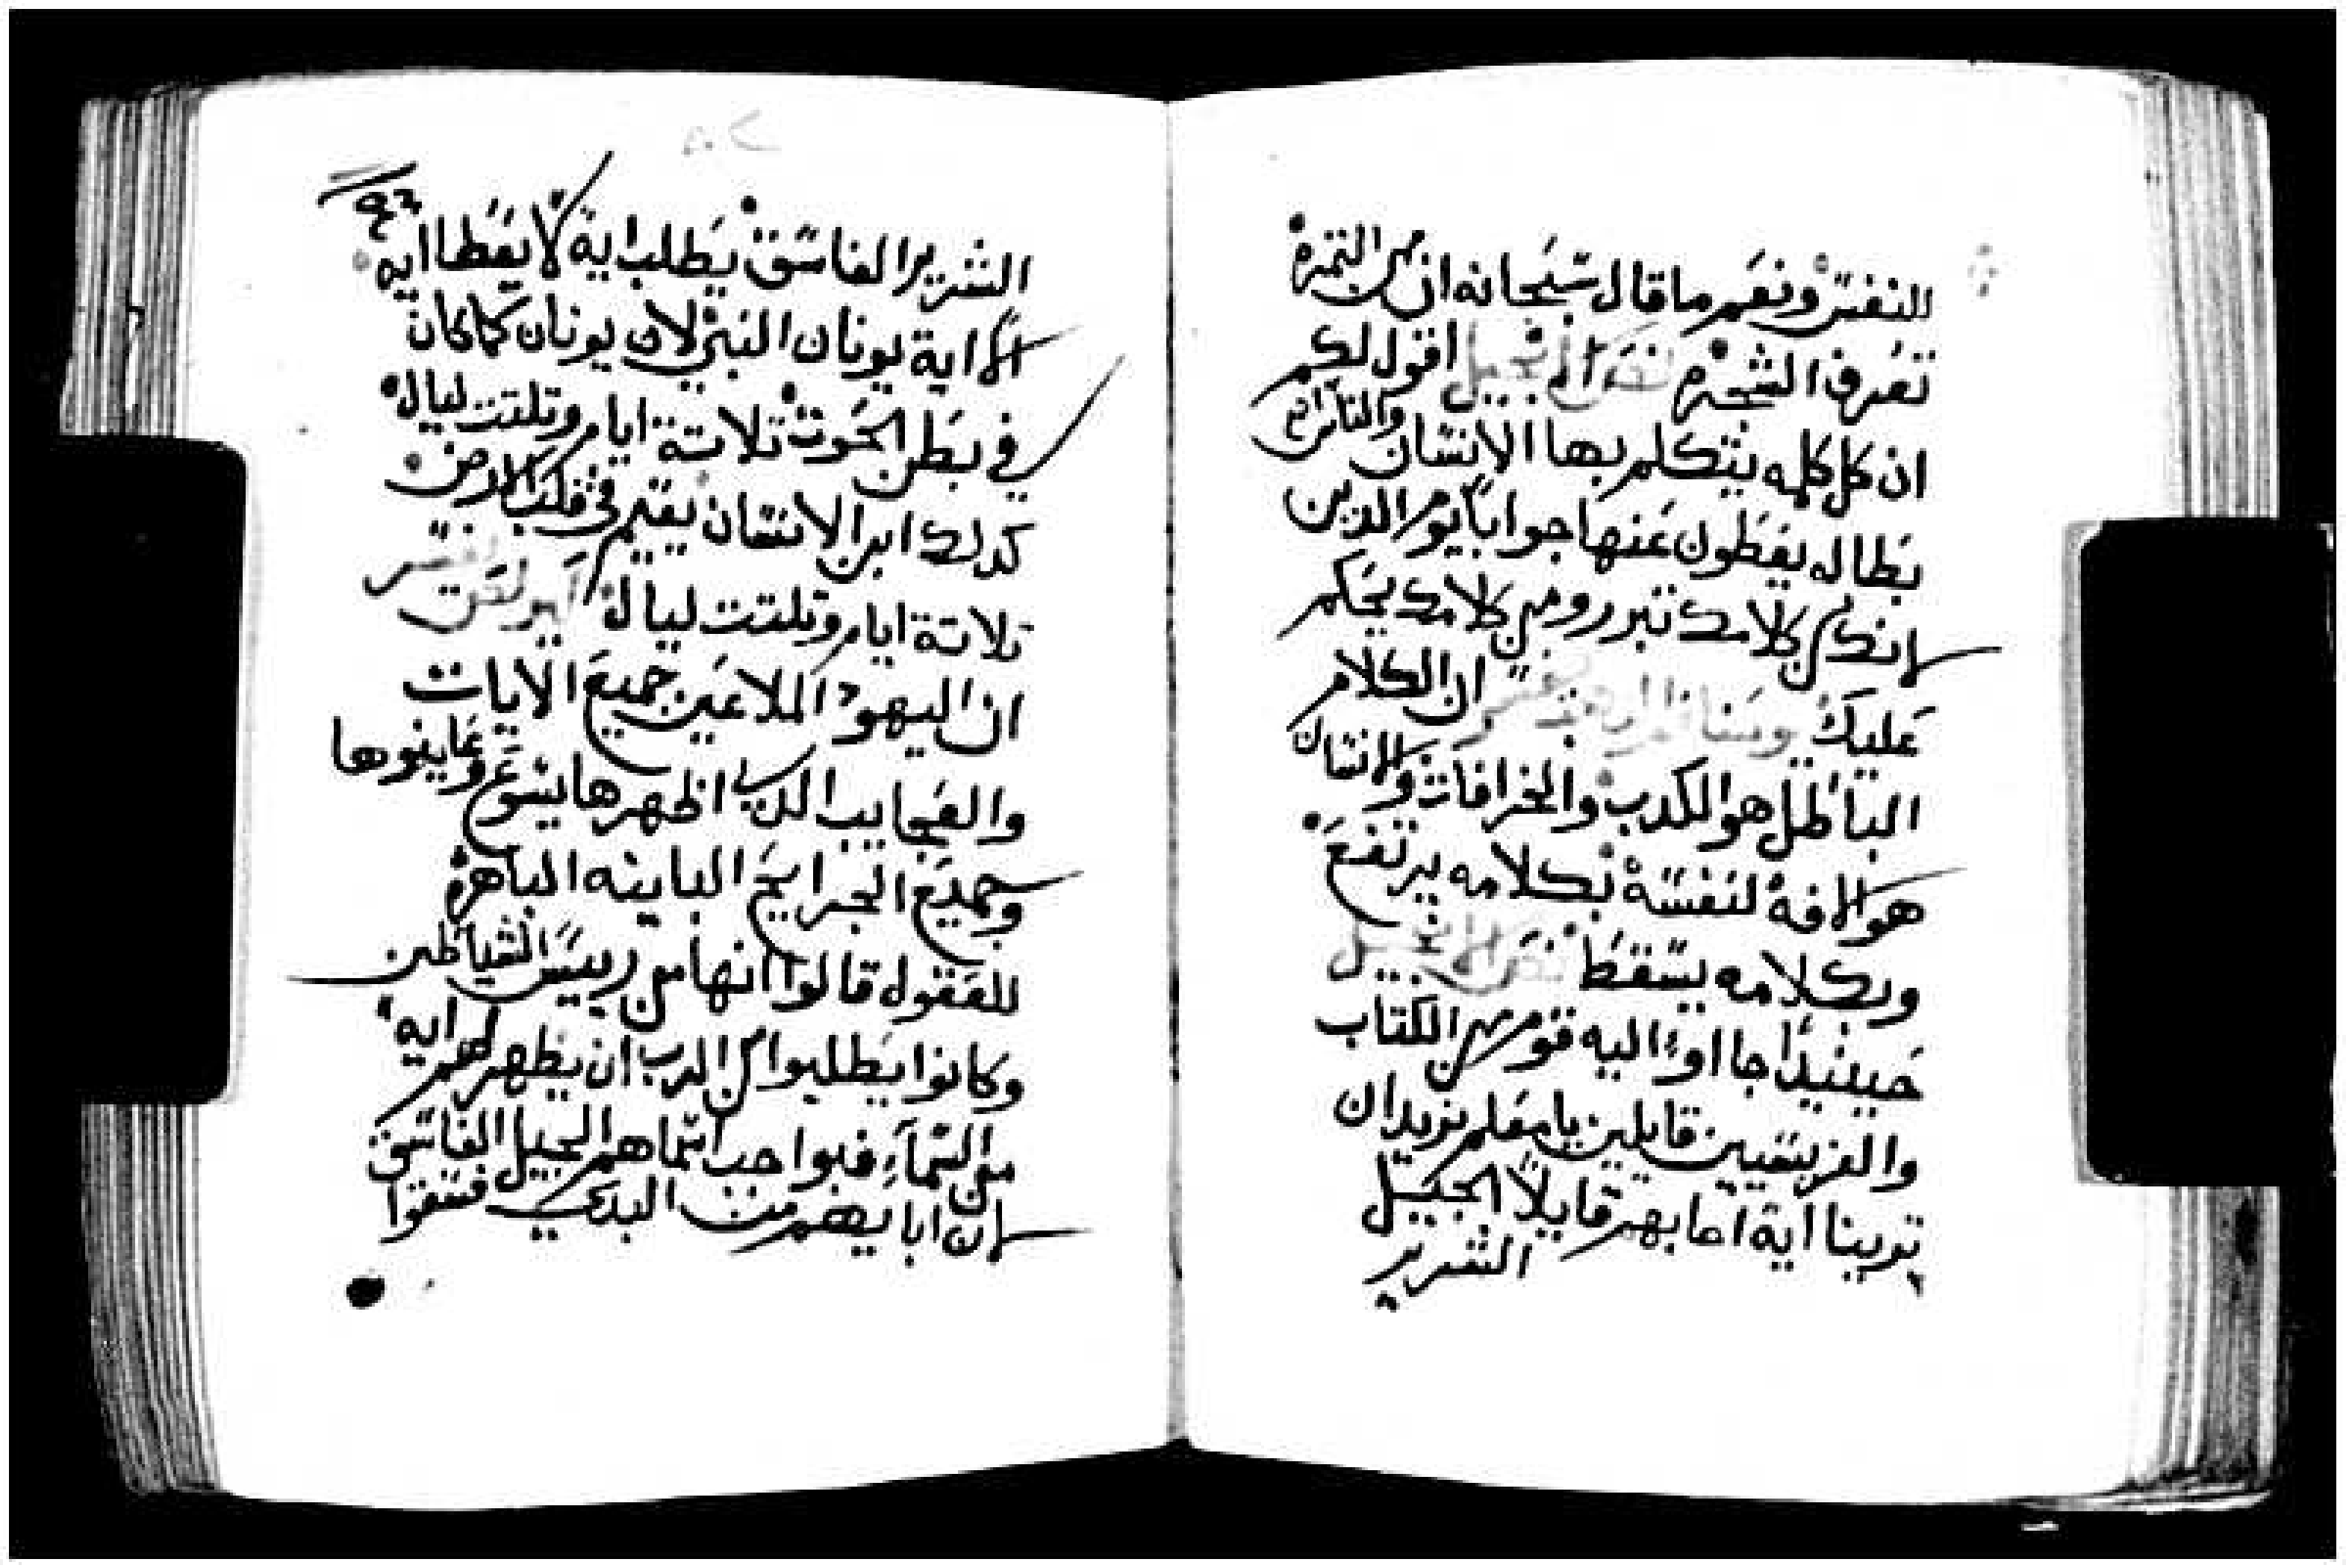 للنفس ونعم ما قال سبحانه ان من التمرة
تعرف الشجره نص الانجيل اقول لكم
ان كل كلمه يتكلم بها الانسان
بطاله يعطون عنها جوابا يوم الدين
انك من كلامك تتبرر ومن كلامك يحكم
عليك ان الكلام
الباطل هو الكدب والخرافات والانسان
هو الافة لنفسه بكلامه يرتفع
وبكلامه يسقط نص الانجيل
حينيدا جااوا اليه قوم من الكتاب
والفريسيين قايلين يا معلم نريد ان
تورينا اية اجابهم قايلا الجيل
الشرير
الشرير الفاسق يطلب اية لا يعطا ايه
الا اية يونان النبي لان يونان كما كان
في بطن الحوت تلاتة ايام وتلتت ليال
كدلك ابن الانسان يقيم في قلب الارض
تلاتة ايام وتلتت ليال
ان اليهود الملاعين جميع الايات
والعجايب الدي اظهرها يسوع وعاينوها
وجميع الجرايح الباينه الباهرة
للعقول قالوا انها من رييس الشياطين
وكانوا يطلبوا من الرب ان يظهر لهم ايه
من السماء فبواجب اسماهم الجيل الفاسق
لان ابايهم مند البدي فسقوا